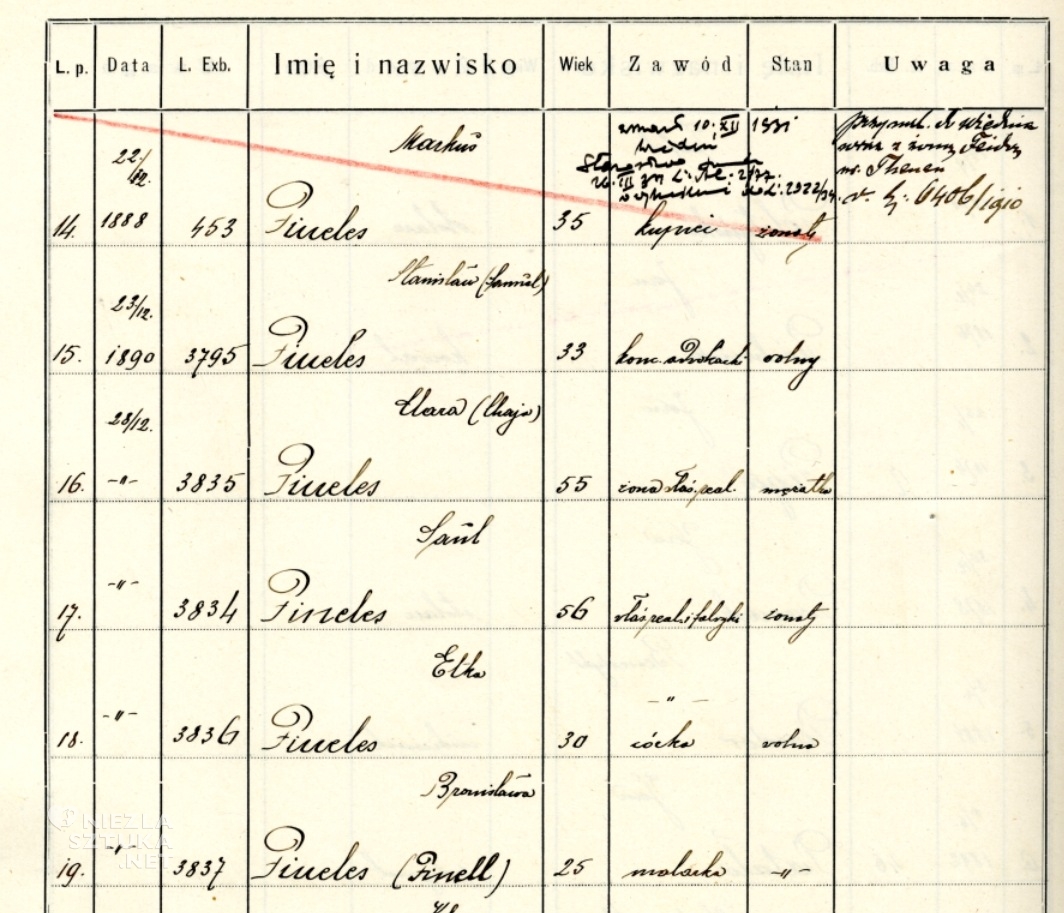 L. p. Data L. Exb. Imię i nazwisko Wiek Zawód Stan Uwaga
Markus zmarł 10. XII 1931
22/12.
14. 1888 453 Pineles 35 kupiec żonaty v. L: 6406/1910
Stanisław (Samuel)
23/12.
15. 1890 3795 Pineles 33 konc. adwokacki wolny
Klara (Chaja)
28/12.
16. -"- 3835 Pineles 55 żona właś. real. mężatka
Saul
17. -"- 3834 Pineles 56 właś. real. i fabryki żonaty
Etka
18. -"- 3836 Pineles 30 -"- córka wolna
Bronisława
19. -"- 3837 Pineles (Pinell) 25 malarka -"-
NIEZŁA
SZTUKA
.NET